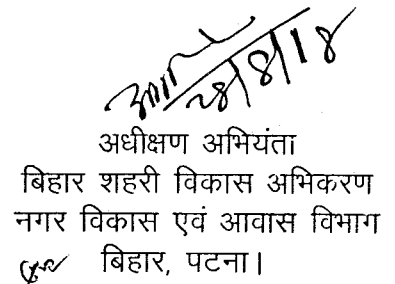 अधीक्षण अभियंता
बिहार शहरी विकास अभिकरण
नगर विकास एवं आवास विभाग
बिहार, पटना।